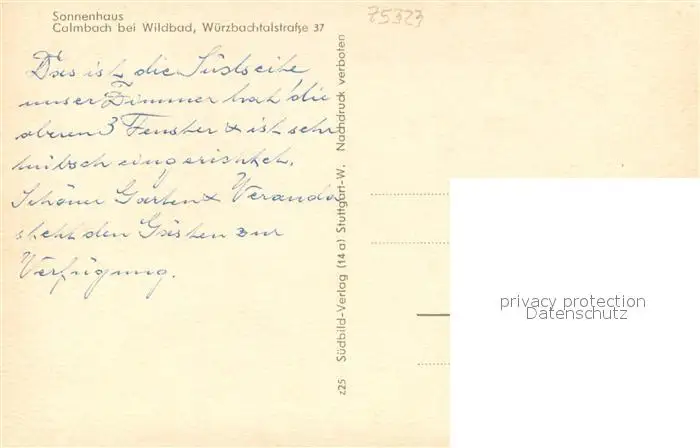 Sonnenhaus
Calmbach bei Wildbad, Würzbachtalstraße 37
75323
Das ist die Südseite
unser Zimmer hat die
oberen 3 Fenster & ist sehr
hübsch eingerichtet.
Schöner Garten & Veranda
steht den Gästen zur
Verfügung.
z25 Südbild-Verlag (14a) Stuttgart-W. Nachdruck verboten
privacy protection
Datenschutz